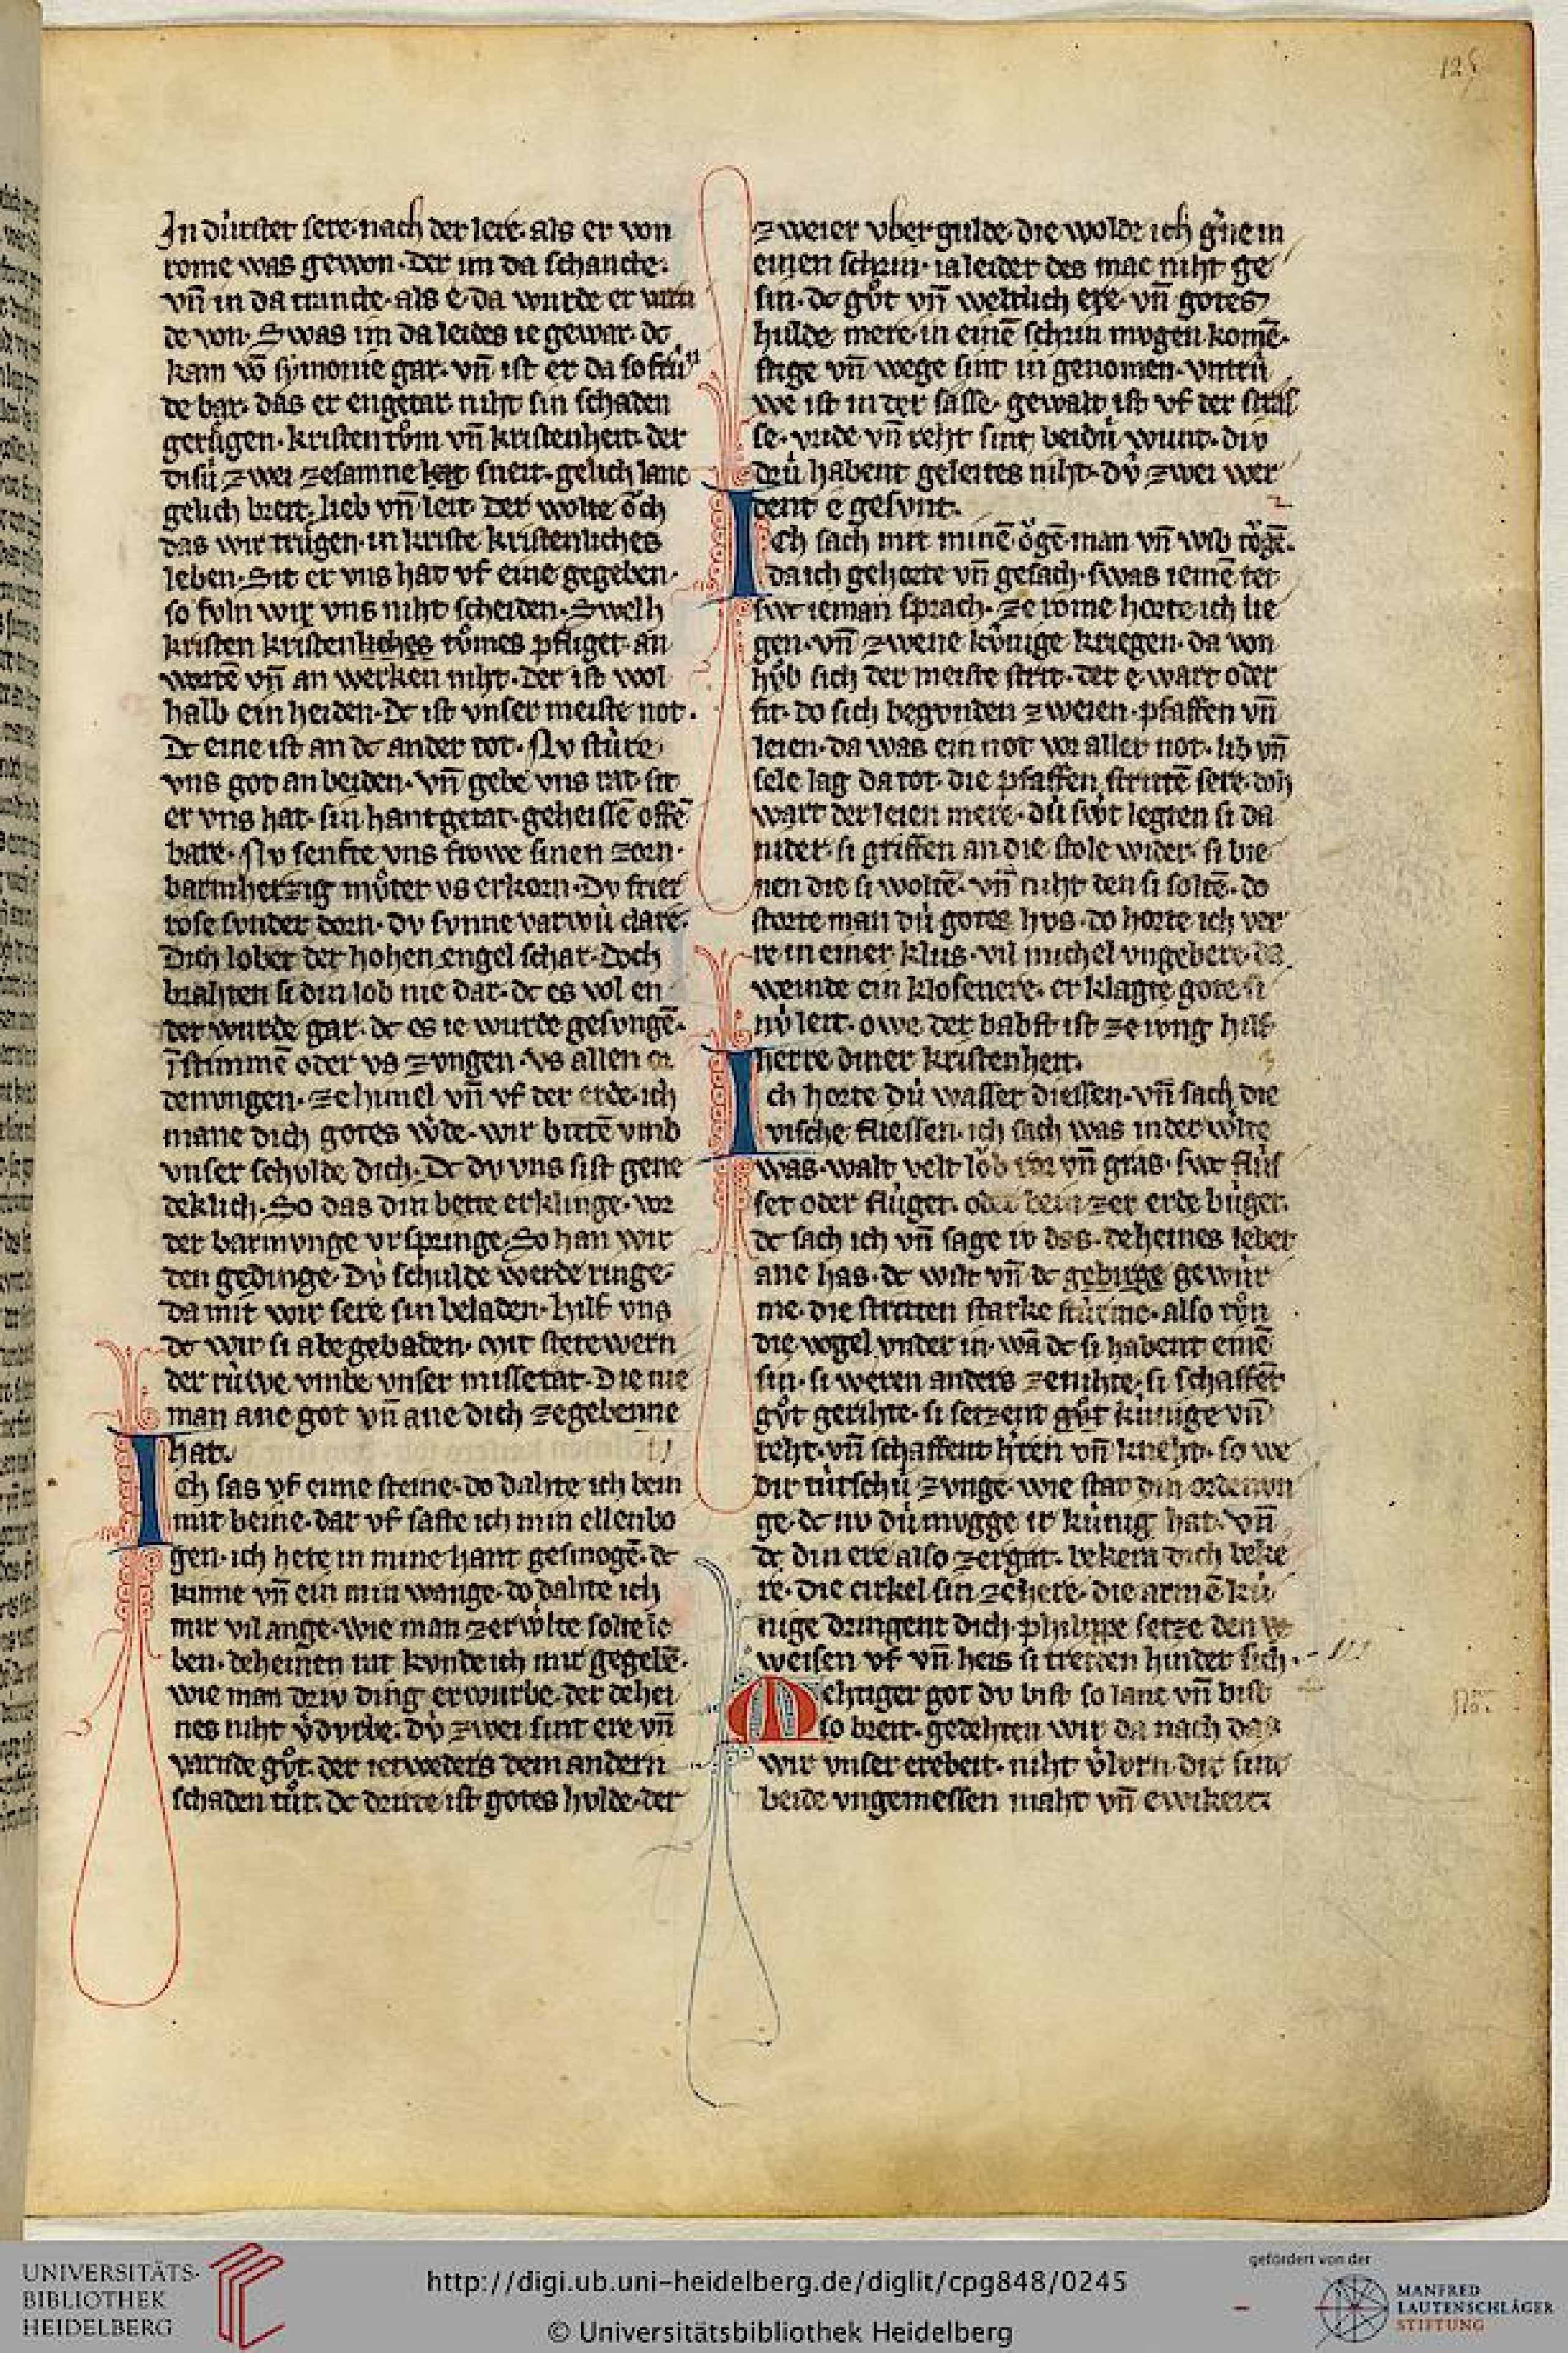 125
In dúrstet sere nach der lere· als er von
rome was gewon· Der im da schancte·
vñ in da trancte· als e· da wurde er varn
de von· Swas im da leides ie gewar· dc
kam võ symonie gar· vñ ist er da so frúⁿ
de bar· das er engetar niht sin schaden
gerůgen· kristentům vñ kristenheit· der
disú zwei zesamne sneit· gelich lanc
gelich breit· lieb vñ leit· Der wolte ǒch
das wir trůgen· in kriste kristenliches
leben· Sit er vns hat vf eine gegeben·
so svln wir vns niht scheiden· Swelh
kristen kristenliches tůmes pfliget· an
wortē vñ an werken niht· der ist wol
halb ein heiden· Dc ist vnser meiste not·
Dc eine ist an dc ander tot· Nv stúre
vns got an beiden· vñ gebe vns rat· sit
er vns hat· sin hantgetat· geheissē offē
bare· Nv senfte vns frowe sinen zorn·
barmherzig můter vs erkorn· Dv frier
rose svnder dorn· dv svnne varwú clare·
Dich lobet der hohen engel schat· Doch
brahten si din lob nie dar· dc es vol en
det wurde gar· dc es ie wurde gesvngē·
ī stimmē oder vs zvngen· vs allen or
denvngen· ze himel vñ vf der erde· ich
mane dich gotes w̓de· wir bittē vmb
vnser schvlde dich· Dc dv vns sist gene
deklich· So das din bette erklinge· vor
der barmvnge vrspringe· So han wir
den gedinge· Dv schulde werde ringe·
da mit wir sere sin beladen· hilf vns
dc wir si abe gebaden· mit stete wern
der rúwe vmbe vnser missetat· Die nie
man ane got vñ ane dich ze gebenne
hat·
Ich sas vf eime steine· do dahte ich bein
mit beine· dar vf saste ich min ellenbo
gen· ich hete in mine hant gesmogē· dc
kinne vñ ein min wange· do dahte ich
mir vil ange· wie man zer w̓lte solte le
ben· deheinen rat konde ich mir gegebē·
wie man driv ding erwurbe· der dehei
nes niht v̓dvrbe· dú zwei sint ere vñ
varnde gůt· der ietweders dem andern
schaden tůt· dc dritte ist gotes hvlde· der
zweier vbergulde· die wolde ich g̓ne in
einen schrin· ia leider des mac niht ge
sin· dc gůt vñ weltlich ere· vñ gotes
hulde mere· in einē schrin mvgen komē·
stige vñ wege sint in genomen· vntrú
we ist in der sasse· gewalt ist vf der stras
se· vride vñ reht sint beidú wunt· div
drú habent geleites niht· dv̓ zwei wer
dent e gesvnt·
Ich sach mit minē ǒgē· man vñ wib tǒgē·
da ich gehorte vñ gesach· swas iemē tet
swc ieman sprach· ze rome horte ich lie
gen· vñ zwene kúnige triegen· da von
hůb sich der meiste strit· der e· wart oder
sit· do sich begonden zweien· pfaffen vñ
leien· da was ein not vor aller not· lib vñ
sele lag da tot· die pfaffen strittē sere· doh
wart der leien mere· dú swert legten si da
nider· si griffen an die stole wider· si bie
nen die si woltē· vñ niht den si soltē· do
storte man dú gotes hvs· do horte ich ver
re in einer klus· vil michel vngebere· da
weinde ein klosenere· er klagte gote si
nv́ leit· owe der babst ist ze ivng· hilf
herre diner kristenheit·
Ich horte dú wasser diessen· vñ sach die
vische fliessen· ich sach was in der w̓lte
was· walt velt lǒb ror vñ gras· swc flús
set oder flúget· oder bein zer erde búget·
dc sach ich vñ sage iv das· deheines lebet
ane has· dc wilt vñ dc gewúr
me· die stritten starke stúrme· also tůn
die vogel vnder in· wā dc si habent einē
sin· si weren anders ze nihte· si schaffēt
gůt gerihte· si setzent kúnige vñ
reht· vñ schaffent h̓ren vñ kneht· so we
dir tútschú zvnge· wie stat din ordenvn
ge· dc nv dú mvgge ir kúnig hat· vñ
dc din ere also zergat· bekera dich beke
re· die cirkel sin ze here· die armē kú
nige dringent dich· philippe setze den we
weisen vf· vñ heis si tretten hinder sich·
Mehtiger got dv bist so lanc vñ bist
so breit· gedehten wir da nach das
wir vnser erebeit· niht v̓lorn· dir sint
beide vngemessen maht vñ ewikeit·
UNIVERSITÄTS-
BIBLIOTHEK
HEIDELBERG
http://digi.ub.uni-heidelberg.de/diglit/cpg848/0245
© Universitätsbibliothek Heidelberg
gefördert von der
MANFRED
LAUTENSCHLÄGER
STIFTUNG